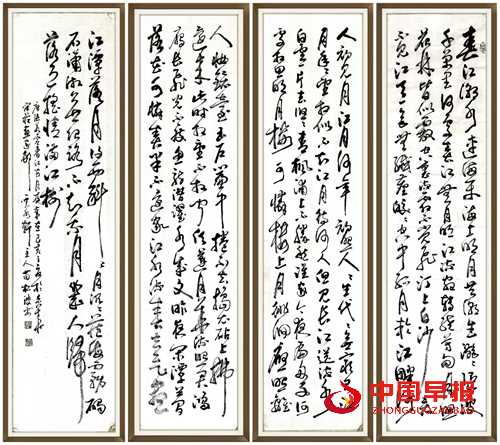 春江潮水连海平海上明月共潮生滟滟随波
千万里何处春江无月明江流宛转绕芳甸月照
花林皆似霰空里流霜不觉飞汀上白沙看
不见江天一色无纤尘皎皎空中孤月轮江畔何
人初见月江月何年初照人人生代代无穷已江
月年年望相似不知江月待何人但见长江送流水
白云一片去悠悠青枫浦上不胜愁谁家今夜扁舟子何
处相思明月楼可怜楼上月徘徊应照离
人妆镜台玉户帘中卷不去捣衣砧上拂
还来此时相望不相闻愿逐月华流照君鸿
雁长飞光不度鱼龙潜跃水成文昨夜闲潭梦
落花可怜春半不还家江水流春去欲尽
江潭落月复西斜斜月沉沉藏海雾碣
石潇湘无限路不知乘月几人归
落月摇情满江树
中国早报
ZHONGGUOZAOBAO